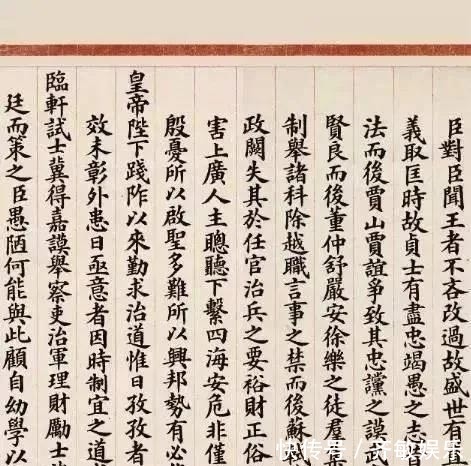 臣對臣聞王者不吝改過故盛世有
義取匡時故貞士有盡忠竭愚之志
法而後賈山賈誼爭致其忠讜之謨
賢良而後董仲舒嚴安徐樂之徒羣
制舉諸科除越職言事之禁而後蘇
政闕失其於任官治兵之要裕財正俗
害上廣人主聰聽下繫四海安危非僅
殷憂所以啟聖多難所以興邦勢有必
皇帝陛下踐阼以來勤求治道惟日孜孜者
效未彰外患日亟意者因時制宜之道
臨軒試士冀得嘉謨舉察吏治軍理財勵士
廷而策之臣愚陋何能與此顧自幼學以
快传号 / 娱乐